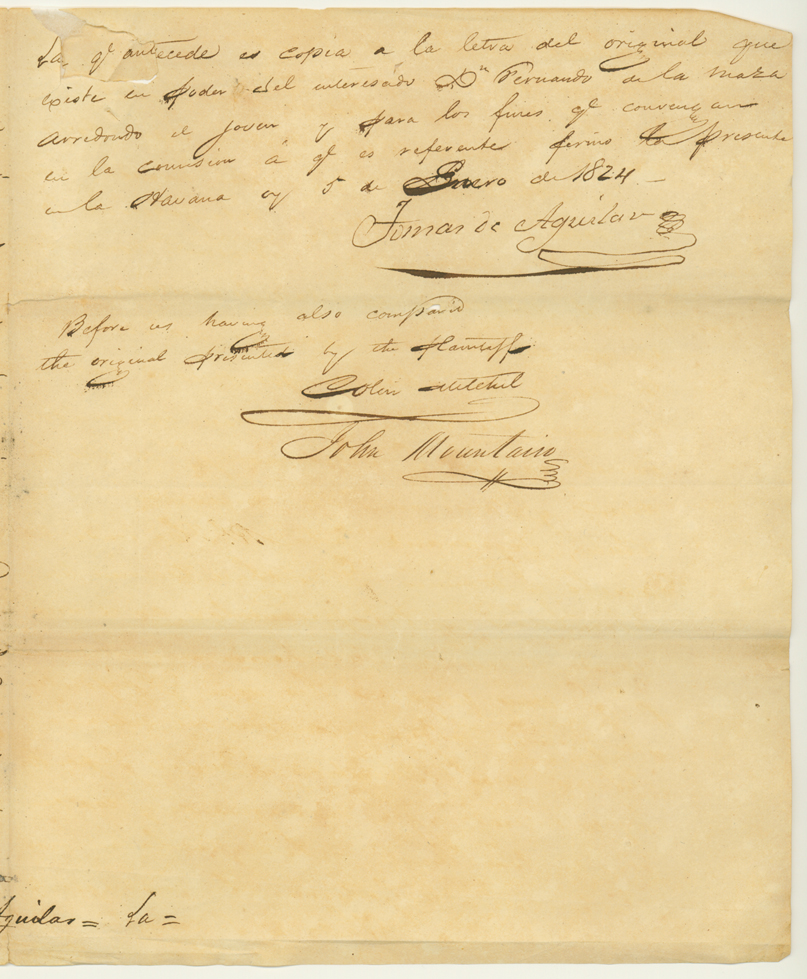 La qe antecede es copia a la letra del original que
existe en poder del interesado Dn Fernando de la Maza
Arredondo el joven y para los fines qe convengan
en la comision á qe es referente firmo la presente
en la Havana oy 5 de Enero de 1824 —
Tomas de Aguilar
Before us having also compared
the original presented by the plaintiff
Colin Mitchel
John Mountain
Aguilar = La =